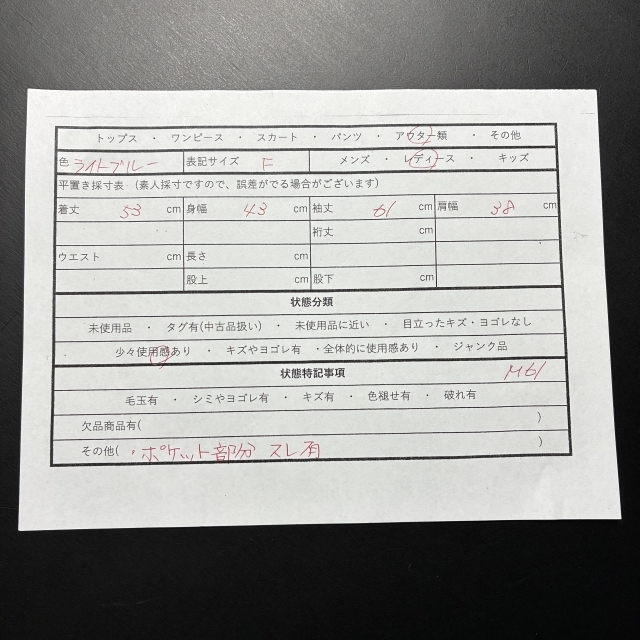 トップス ・ ワンピース ・ スカート ・ パンツ ・ アウター類 ・ その他
色 ライトブルー 表記サイズ F メンズ ・ レディース ・ キッズ
平置き採寸表 （素人採寸ですので、誤差がでる場合がございます）
着丈 53 cm 身幅 43 cm 袖丈 61 cm 肩幅 38 cm
裄丈 cm
ウエスト cm 長さ cm cm
股上 cm 股下 cm
状態分類
未使用品 ・ タグ有(中古品扱い) ・ 未使用品に近い ・ 目立ったキズ・ヨゴレなし
少々使用感あり ・ キズやヨゴレ有 ・全体的に使用感あり ・ ジャンク品
状態特記事項 M61
毛玉有 ・ シミやヨゴレ有 ・ キズ有 ・ 色褪せ有 ・ 破れ有
欠品商品有( )
その他( ・ポケット部分 スレ有 )